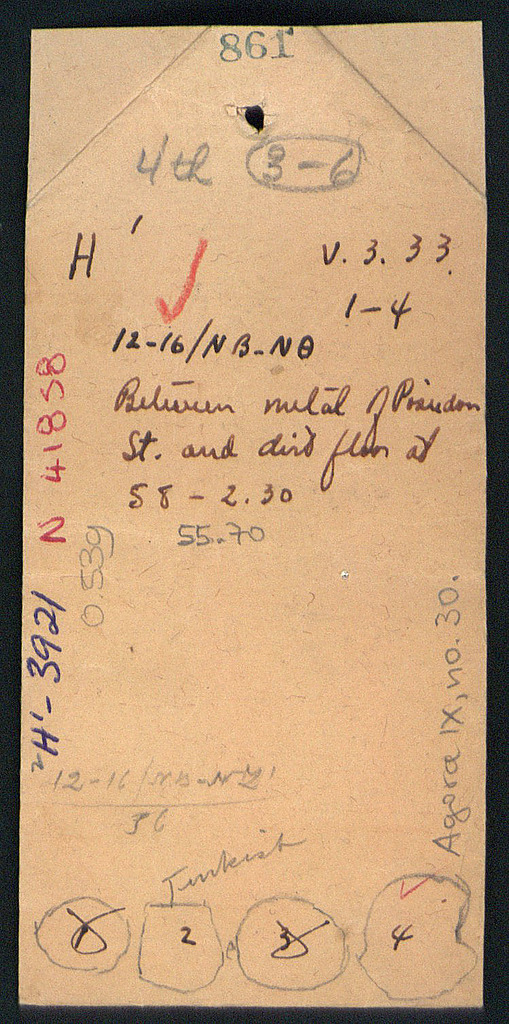 861
4th 3-6
H' V. 3. 33.
1-4
12-16/NB-NΘ
Between metal of Poseidon
St. and dirt floor at
58 - 2.30
55.70
N 41858
0.53g
"H'-3921
Agora IX, no. 30.
12-16/NB-NZ'
36
Turkish
1 2 3 4